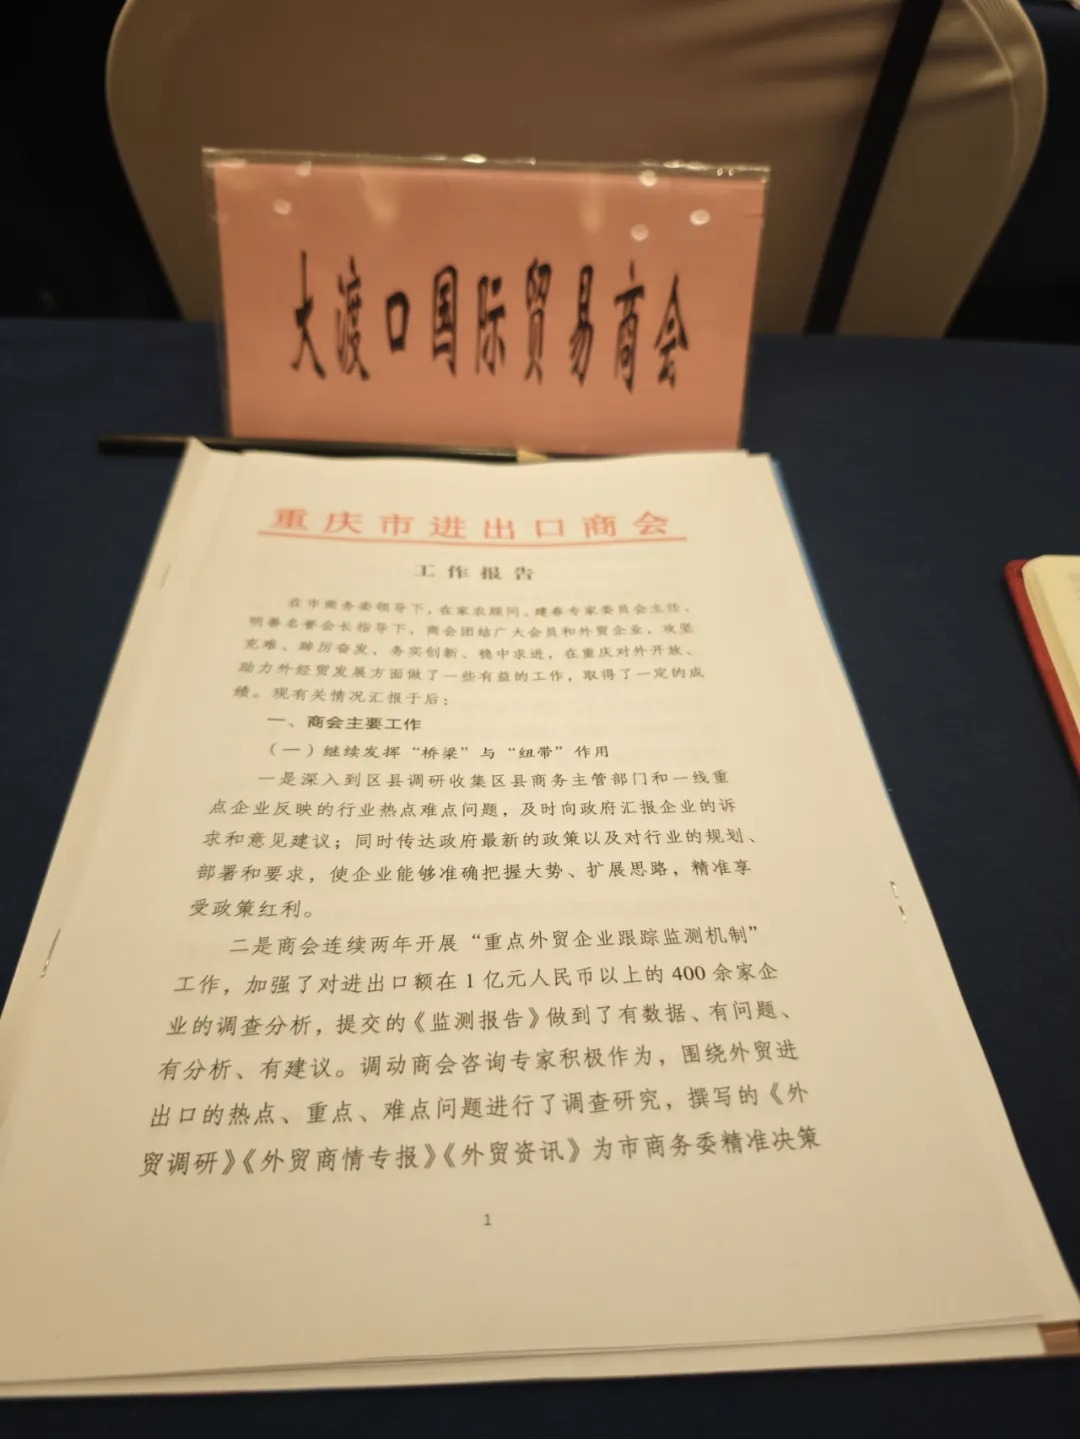 大渡口国际贸易商会
重庆市进出口商会
工作报告
在市商务委领导下，在家农顾问、建春专家委员会主任、
明善名誉会长指导下，商会团结广大会员和外贸企业，攻坚
克难、踔厉奋发，务实创新、稳中求进，在重庆对外开放、
助力外经贸发展方面做了一些有益的工作，取得了一定的成
绩。现有关情况汇报于后：
一、商会主要工作
（一）继续发挥“桥梁”与“纽带”作用
一是深入到区县调研收集区县商务主管部门和一线重
点企业反映的行业热点难点问题，及时向政府汇报企业的诉
求和意见建议；同时传达政府最新的政策以及对行业的规划、
部署和要求，使企业能够准确把握大势、扩展思路，精准享
受政策红利。
二是商会连续两年开展“重点外贸企业跟踪监测机制”
工作，加强了对进出口额在1亿元人民币以上的400余家企
业的调查分析，提交的《监测报告》做到了有数据、有问题、
有分析、有建议。调动商会咨询专家积极作为，围绕外贸进
出口的热点、重点、难点问题进行了调查研究，撰写的《外
贸调研》《外贸商情专报》《外贸资讯》为市商务委精准决策
1